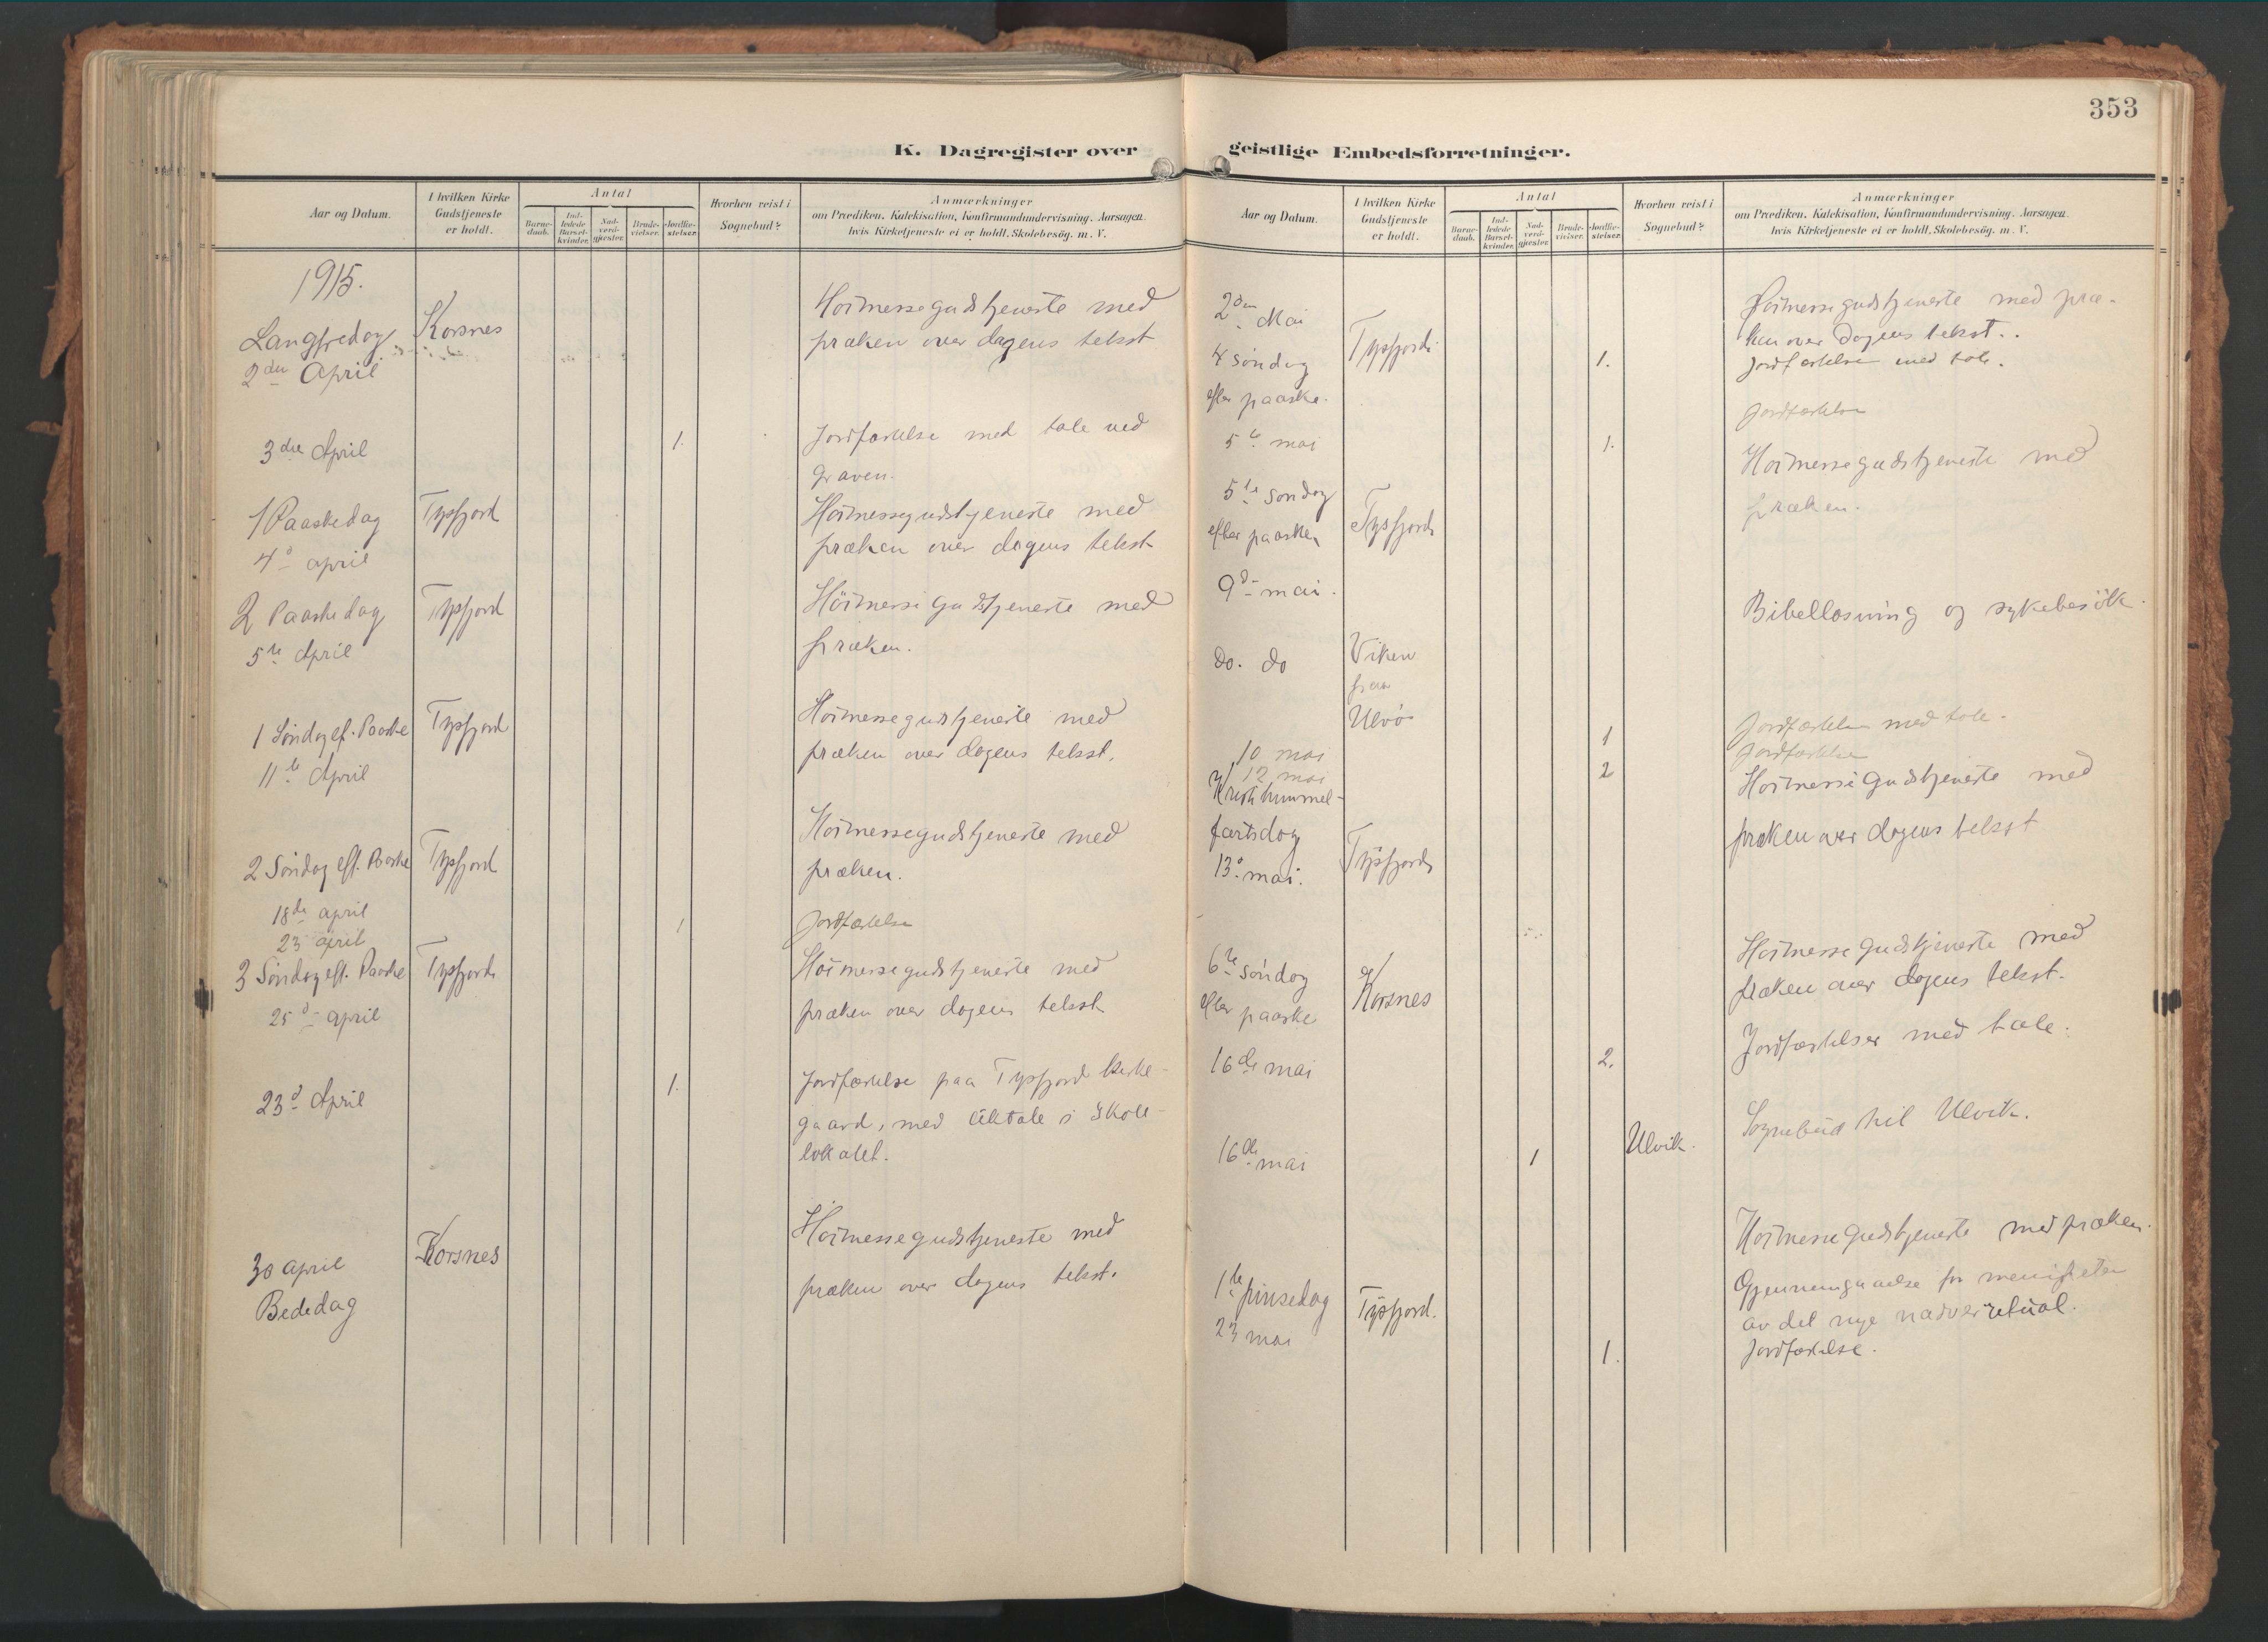 353
K. Dagregister over geistlige Embedsforretninger.
Aar og Datum.
I hvilken Kirke Gudstjeneste er holdt.
Antal
Barnedaab.
Indledede Barselkvinder.
Nadverdgjæster.
Brudevielser.
Jordfæstelser.
Hvorhen reist i Sognebud?
Anmærkninger
om Prædiken. Katekisation, Konfirmandundervisning. Aarsagen.
hvis Kirketjeneste ei er holdt. Skolebesög. m. V.
1915.
Langfredag Korsnes Höimessegudstjeneste med
2den April præken over dagens tekst
3die April 1. Jordfæstelse med tale ved
graven.
1 Paaskedag Tysfjord Höimessegudstjeneste med
4d april præken over dagens tekst
2 Paaskedag Tysfjord Höimessegudstjeneste med
5te April præken.
1 Söndag ef. Paaske Tysfjord Höimessegudstjeneste med
11te April præken over dagens tekst.
2 Söndag eft. Paaske Tysfjord Höimessegudstjeneste med
præken.
18de april
23 april 1 Jordfæstelse
3 Söndag eft. Paaske Tysfjord Höimessegudstjeneste med
25d april præken over dagens tekst
23d April 1. Jordfæstelse paa Tysfjord kirke-
gaard, med liktale i skole-
lokalet.
30 april Korsnes Höimessegudstjeneste med
Bededag præken over dagens tekst.
Aar og Datum.
I hvilken Kirke Gudstjeneste er holdt.
Antal
Barnedaab.
Indledede Barselkvinder.
Nadverdgjæster.
Brudevielser.
Jordfæstelser.
Hvorhen reist i Sognebud?
Anmærkninger
om Prædiken. Katekisation, Konfirmandundervisning. Aarsagen.
hvis Kirketjeneste ei er holdt. Skolebesög. m. V.
2den Mai Höimessegudstjeneste med præ-
Tysfjord ken over dagens tekst..
4 söndag 1. Jordfæstelse med tale.
efter paaske.
Jordfæstelse
5te mai 1.
5te söndag Höimessegudstjeneste med
efter paaske Tysfjord præken.
9d mai.
Bibellæsning og sykebesök.
do. do Viken
paa
Ulvö
10 mai 1 Jordfæstelse med tale.
12 mai 2 Jordfæstelse
Kristi himmel- Höimessegudstjeneste med
færtsdag præken over dagens tekst
13d mai. Tysfjord
6te söndag Korsnes Höimessegudstjeneste med
efter paaske præken over dagens tekst.
16de mai 2. Jordfæstelser med tale.
16de mai 1 Ulvik. Sognebud til Ulvik.
1te pinsedag Tysfjord. Höimessegudstjeneste med præken.
23 mai Gjennemgaaelse for menigheten
av det nye nadverritual.
1. Jordfæstelse.